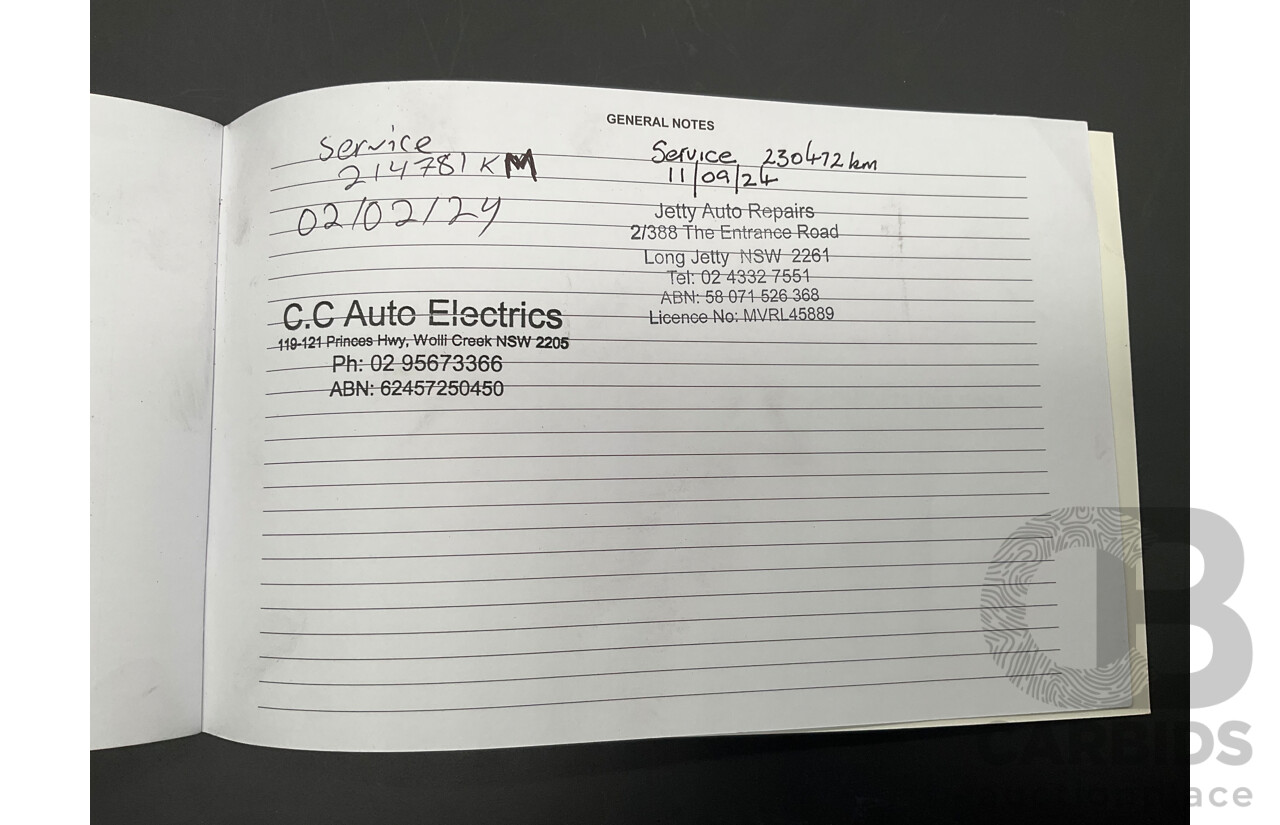 GENERAL NOTES
service
214781 KM
02/02/24
C.C Auto Electrics
119-121 Princes Hwy, Wolli Creek NSW 2205
Ph: 02 95673366
ABN: 62457250450
Service 230472 km
11/09/24
Jetty Auto Repairs
2/388 The Entrance Road
Long Jetty NSW 2261
Tel: 02 4332 7551
ABN: 58 071 526 368
Licence No: MVRL45889
CARBIDS